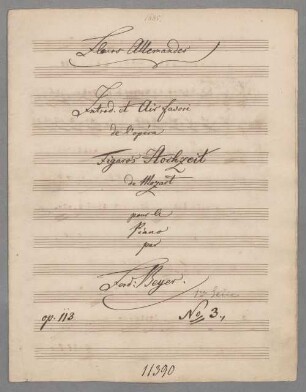 Fleurs Allemandes
Introd. et Air favori
de l'opéra
Figaro's Hochzeit
de Mozart
pour le
Piano
par
Ferd: Beyer.
op. 113
No 3.
11390